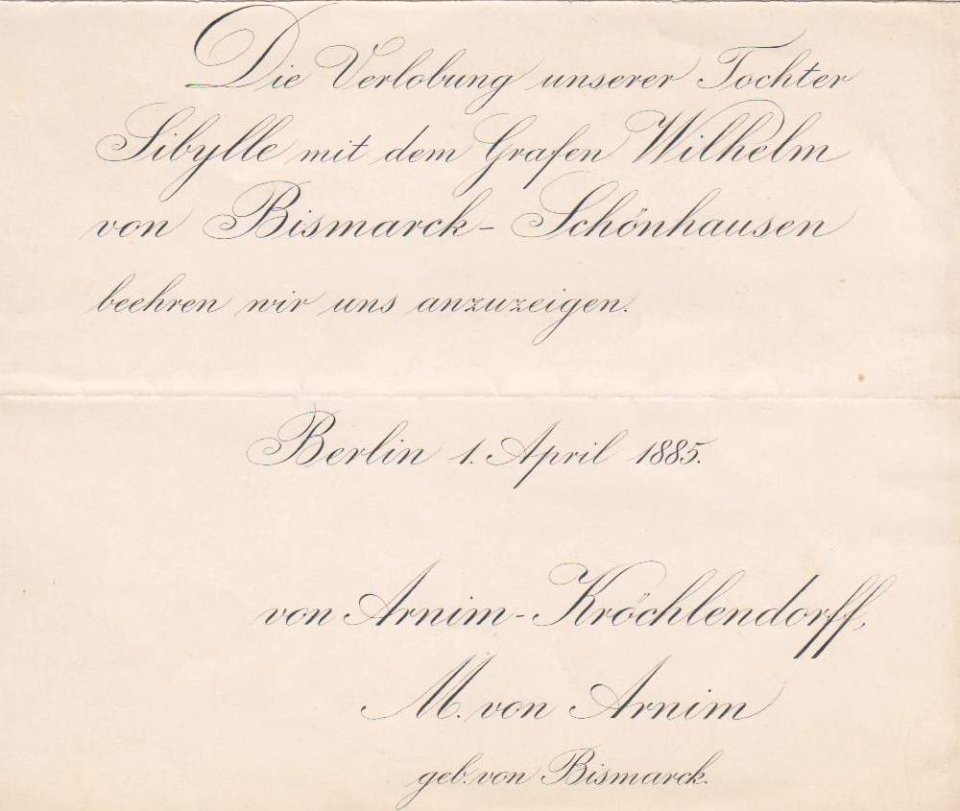 Die Verlobung unserer Tochter
Sibylle mit dem Grafen Wilhelm
von Bismarck-Schönhausen
beehren wir uns anzuzeigen.
Berlin 1. April 1885.
von Arnim-Kröchlendorff,
M. von Arnim
geb. von Bismarck.